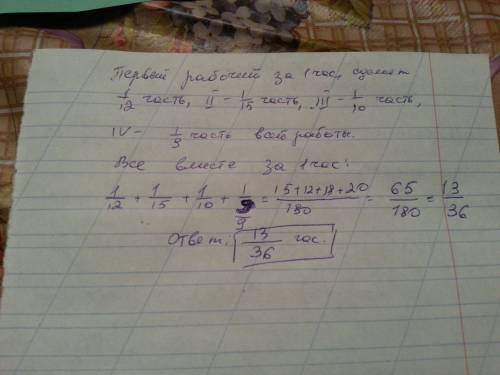 Первый рабочий за 1 час, сделает
1/12 часть, II - 1/15 часть, III - 1/10 часть,
IV - 1/9 часть всей работы.
Все вместе за 1 час:
1/12 + 1/15 + 1/10 + 1/9 = 15+12+18+20/180 = 65/180 = 13/36
Ответ: 13/36 час.